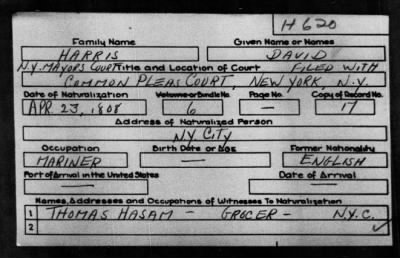 H620
Family Name Given Name or Names
HARRIS DAVID
N.Y. MAYORS COURT Title and Location of Court FILED WITH
COMMON PLEAS COURT, NEW YORK, N.Y.
Date of Naturalization Volume or Bundle No. Page No. Copy of Record No.
APR. 23, 1808 6 — 17
Address of Naturalized Person
NY CITY
Occupation Birth Date or Age Former Nationality
MARINER — ENGLISH
Port of Arrival in the United States Date of Arrival
— —
Names, Addresses and Occupations of Witnesses To Naturalization
1 THOMAS HASAM — GROCER — N.Y.C.
2 ✓